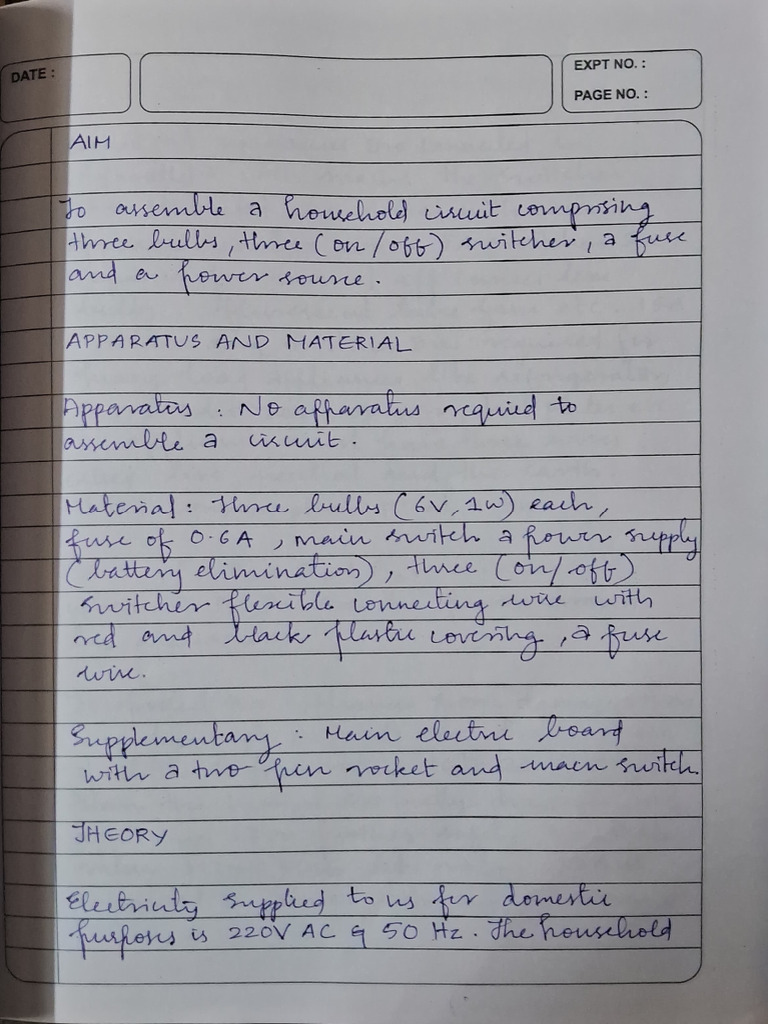 DATE :
EXPT NO. :
PAGE NO. :
AIM
To assemble a household circuit comprising
three bulbs, three (on/off) switcher, a fuse
and a power source.
APPARATUS AND MATERIAL
Apparatus : No apparatus required to
assemble a circuit.
Material : Three bulbs (6V, 1W) each,
fuse of 0.6A, main switch a power supply
(battery elimination), three (on/off)
switcher flexible connecting wire with
red and black plastic covering, a fuse
wire.
Supplementary : Main electric board
with a two pin socket and main switch.
THEORY
Electricity supplied to us for domestic
purposes is 220V AC & 50 Hz. The household